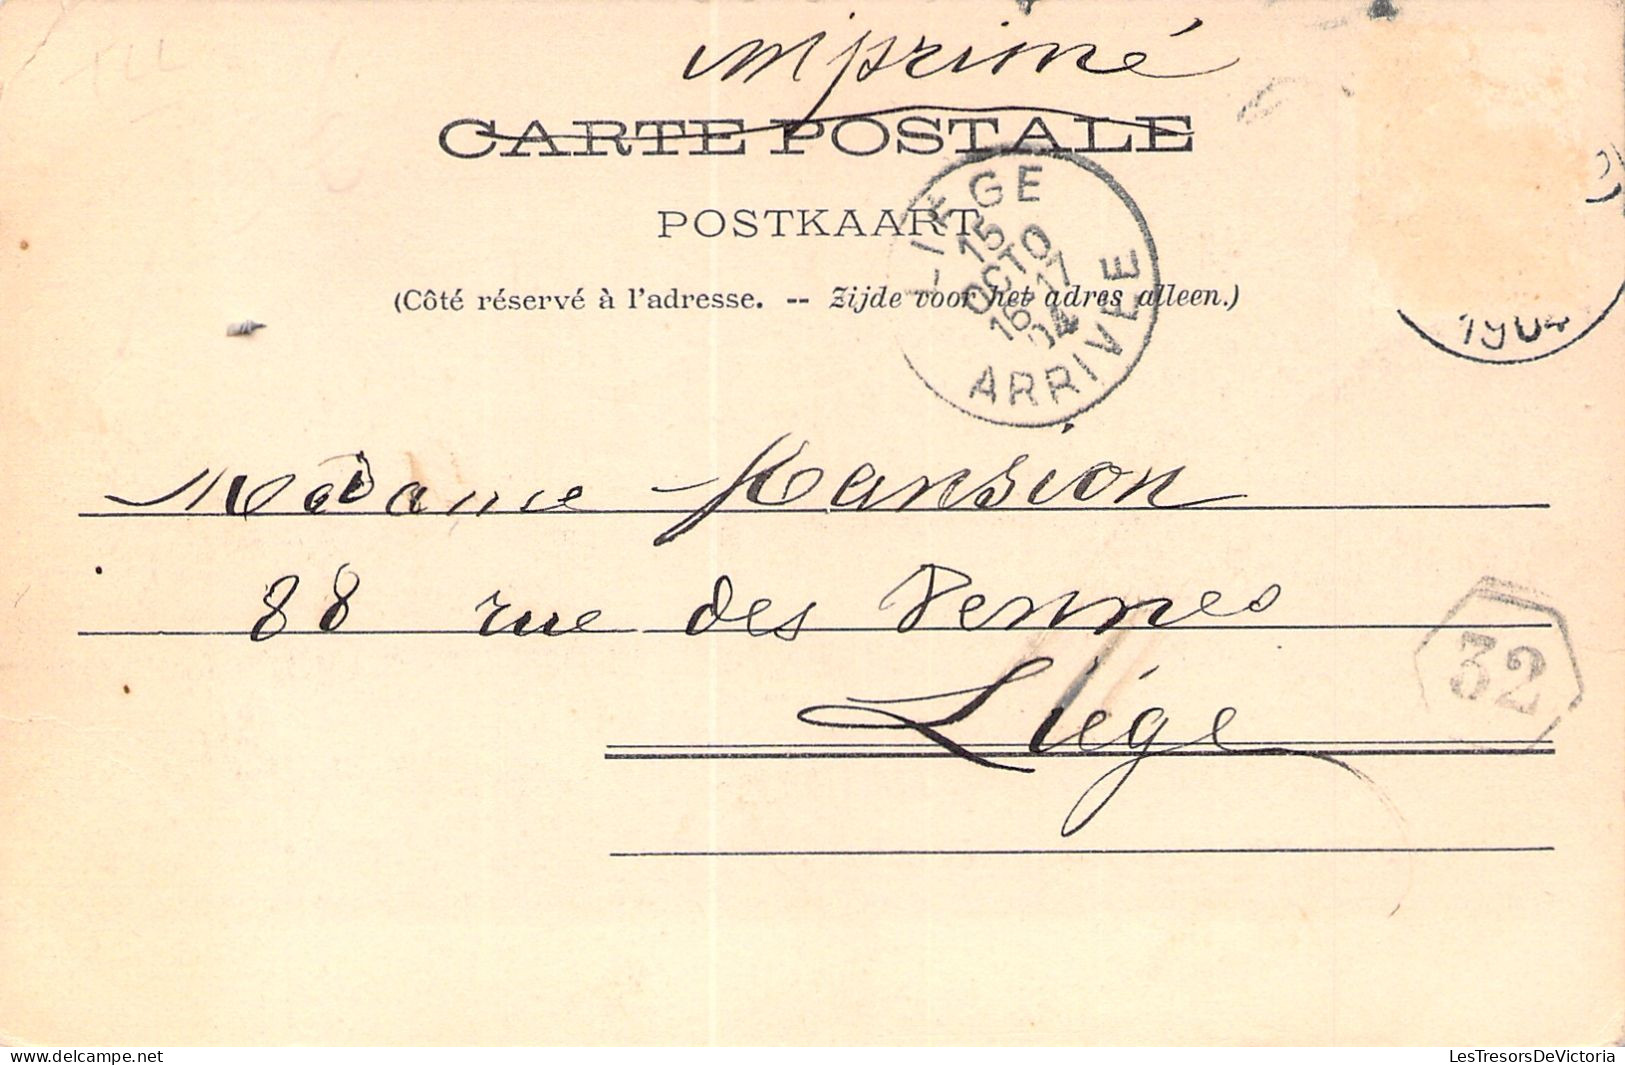 imprimé
CARTE POSTALE
POSTKAART
(Côté réservé à l'adresse. -- Zijde voor het adres alleen.)
LIEGE
15
OCTO
16-17
04
ARRIVEE
1904
Madame Mansion
88 rue des Vennes
Liége
32
www.delcampe.net
LesTresorsDeVictoria